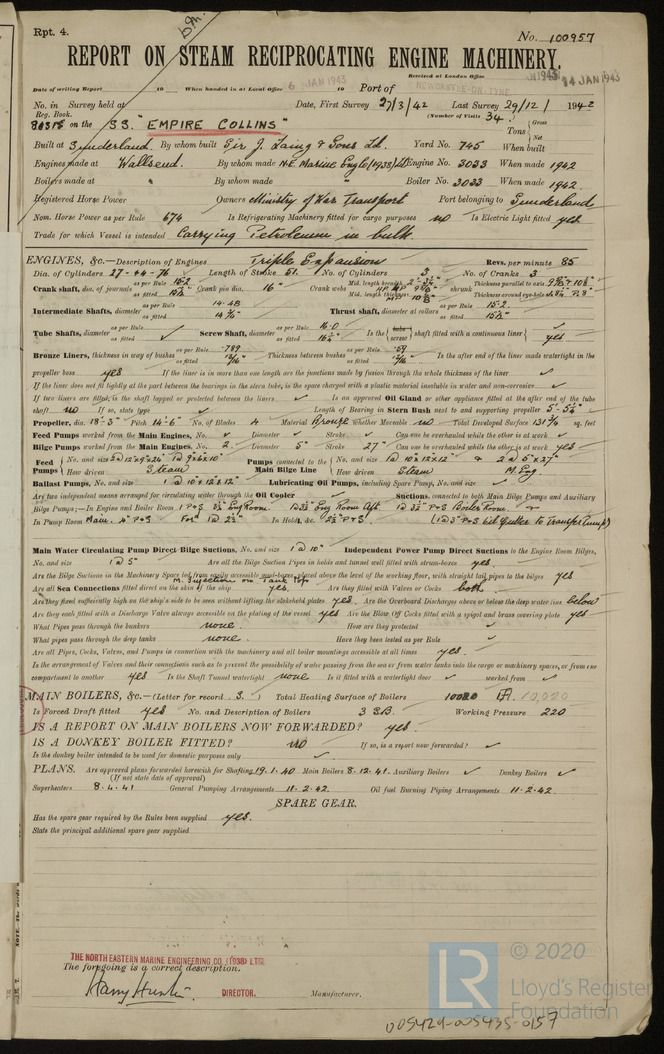 Rpt. 4.
No. 100957
REPORT ON STEAM RECIPROCATING ENGINE MACHINERY.
Received at London Office
Date of writing Report 19 When handed in at Local Office 6 JAN 1943 Port of NEWCASTLE-ON-TYNE 14 JAN 1943
No. in Survey held at Date, First Survey 27/3/42 Last Survey 29/12/ 1942
Reg. Book. (Number of Visits 34)
on the SS. "EMPIRE COLLINS" Tons { Gross Net
Built at Sunderland. By whom built Sir J. Laing & Sons Ld. Yard No. 745 When built
Engines made at Wallsend. By whom made N.E. Marine Eng Co (1938) Ld Engine No. 3033 When made 1942
Boilers made at " By whom made " Boiler No. 3033 When made 1942.
Registered Horse Power Owners Ministry of War Transport Port belonging to Sunderland
Nom. Horse Power as per Rule 674 Is Refrigerating Machinery fitted for cargo purposes no Is Electric Light fitted yes
Trade for which Vessel is intended Carrying Petroleum in bulk.
ENGINES, &c.—Description of Engines Triple Expansion Revs. per minute 85
Dia. of Cylinders 27-44-76 Length of Stroke 51. No. of Cylinders 3 No. of Cranks 3
Crank shaft, dia. of journals as per Rule 15.2 as fitted Crank pin dia. 16" Crank webs Mid. length breadth Mid. length thickness shrunk Thickness parallel to axis Thickness around eye-hole
Intermediate Shafts, diameter as per Rule 14.48 as fitted Thrust shaft, diameter at collars as per Rule 15.2 as fitted
Tube Shafts, diameter as per Rule as fitted Screw Shaft, diameter as per Rule 16.0 as fitted 16¼" Is the { tube screw } shaft fitted with a continuous liner { yes
Bronze Liners, thickness in way of bushes as per Rule .789 as fitted 13/16" Thickness between bushes as per Rule .59 as fitted Is the after end of the liner made watertight in the
propeller boss yes If the liner is in more than one length are the junctions made by fusion through the whole thickness of the liner ✓
If the liner does not fit tightly at the part between the bearings in the stern tube, is the space charged with a plastic material insoluble in water and non-corrosive ✓
If two liners are fitted, is the shaft lapped or protected between the liners ✓ Is an approved Oil Gland or other appliance fitted at the after end of the tube
shaft no If so, state type ✓ Length of Bearing in Stern Bush next to and supporting propeller
Propeller, dia. 18'-3" Pitch 14'-6" No. of Blades 4 Material Bronze whether Moveable no Total Developed Surface sq. feet
Feed Pumps worked from the Main Engines, No. ✓ Diameter ✓ Stroke ✓ Can one be overhauled while the other is at work ✓
Bilge Pumps worked from the Main Engines, No. 2. Diameter 5" Stroke 27" Can one be overhauled while the other is at work yes
Feed Pumps { No. and size How driven Steam Pumps connected to the Main Bilge Line { No. and size 1 @ 10"x12"x12" & 2 @ 5"x27" How driven Steam M. Eng.
Ballast Pumps, No. and size 1 @ 10"x12"x12" Lubricating Oil Pumps, including Spare Pump, No. and size ✓
Are two independent means arranged for circulating water through the Oil Cooler ✓ Suctions, connected to both Main Bilge Pumps and Auxiliary
Bilge Pumps;—In Engine and Boiler Room 1 P & S 3½" Eng Room. 1 @ 3½" Eng Room Aft. 1 @ 3½" P & S Boiler Room.
In Pump Room In Holds, &c.
Main Water Circulating Pump Direct Bilge Suctions, No. and size 1 @ 10" Independent Power Pump Direct Suctions to the Engine Room Bilges,
No. and size 1 @ 5" Are all the Bilge Suction Pipes in holds and tunnel well fitted with strum-boxes yes.
Are the Bilge Suctions in the Machinery Space led from easily accessible mud-boxes, placed above the level of the working floor, with straight tail pipes to the bilges yes
M. Injection on Tank Top
Are all Sea Connections fitted direct on the skin of the ship yes. Are they fitted with Valves or Cocks both.
Are they fixed sufficiently high on the ship's side to be seen without lifting the stokehold plates yes. Are the Overboard Discharges above or below the deep water line below
Are they each fitted with a Discharge Valve always accessible on the plating of the vessel yes Are the Blow Off Cocks fitted with a spigot and brass covering plate yes
What Pipes pass through the bunkers none. How are they protected ✓
What pipes pass through the deep tanks none. Have they been tested as per Rule ✓
Are all Pipes, Cocks, Valves, and Pumps in connection with the machinery and all boiler mountings accessible at all times yes.
Is the arrangement of Valves and their connections such as to prevent the possibility of water passing from the sea or from water tanks into the cargo or machinery spaces, or from one
compartment to another yes Is the Shaft Tunnel watertight none Is it fitted with a watertight door ✓ worked from ✓
MAIN BOILERS, &c.—(Letter for record S.) Total Heating Surface of Boilers 10020 10,020
Is Forced Draft fitted yes No. and Description of Boilers 3 S.B. Working Pressure 220
IS A REPORT ON MAIN BOILERS NOW FORWARDED? yes.
IS A DONKEY BOILER FITTED? no If so, is a report now forwarded? ✓
Is the donkey boiler intended to be used for domestic purposes only ✓
PLANS. Are approved plans forwarded herewith for Shafting 19.1.40 Main Boilers 8.12.41. Auxiliary Boilers ✓ Donkey Boilers ✓
(If not state date of approval)
Superheaters 8.4.41 General Pumping Arrangements 11.2.42. Oil fuel Burning Piping Arrangements 11.2.42.
SPARE GEAR.
Has the spare gear required by the Rules been supplied yes.
State the principal additional spare gear supplied
THE NORTH EASTERN MARINE ENGINEERING CO. (1938) LTD.
The foregoing is a correct description.
DIRECTOR. Manufacturer.
LR © 2020 Lloyd's Register Foundation
005429-005435-0157